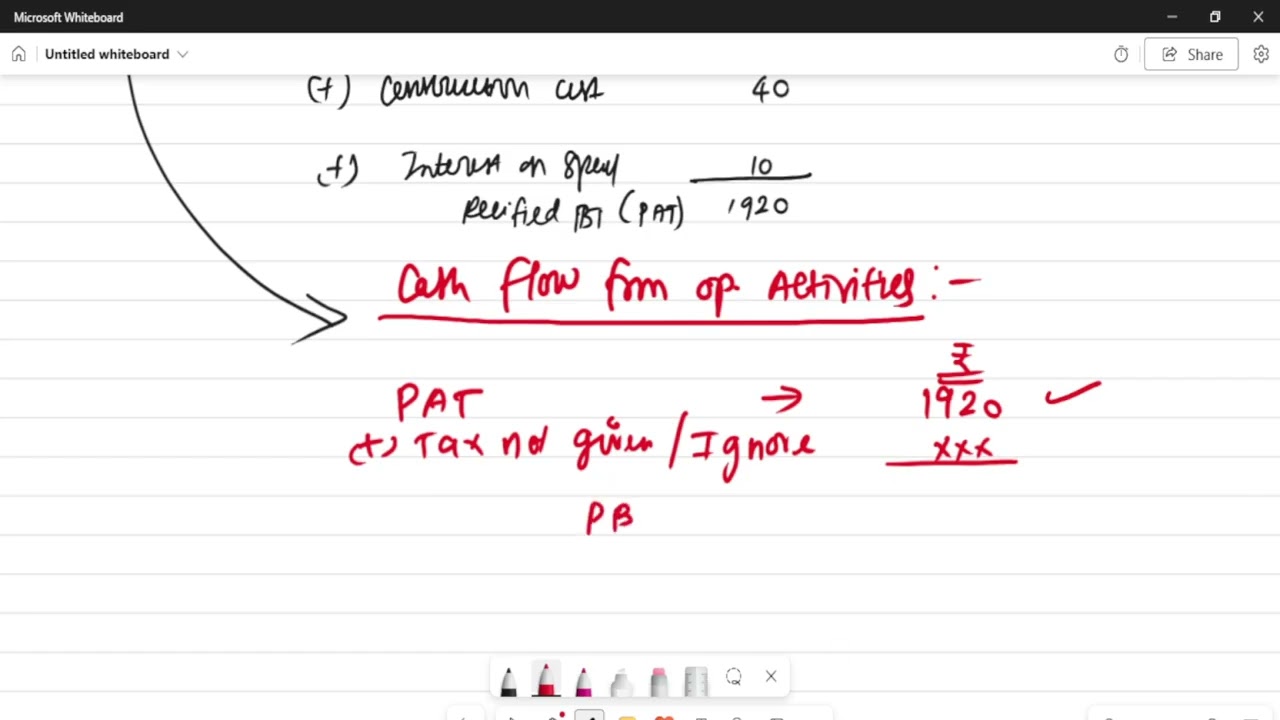 Microsoft Whiteboard
Untitled whiteboard
Share
(+) Construction cost 40
(+) Interest on 10
Recified PBT (PAT) 1920
Cash flow from op. Activities :-
₹
PAT → 1920
(+) Tax not given / Ignore xxx
PB